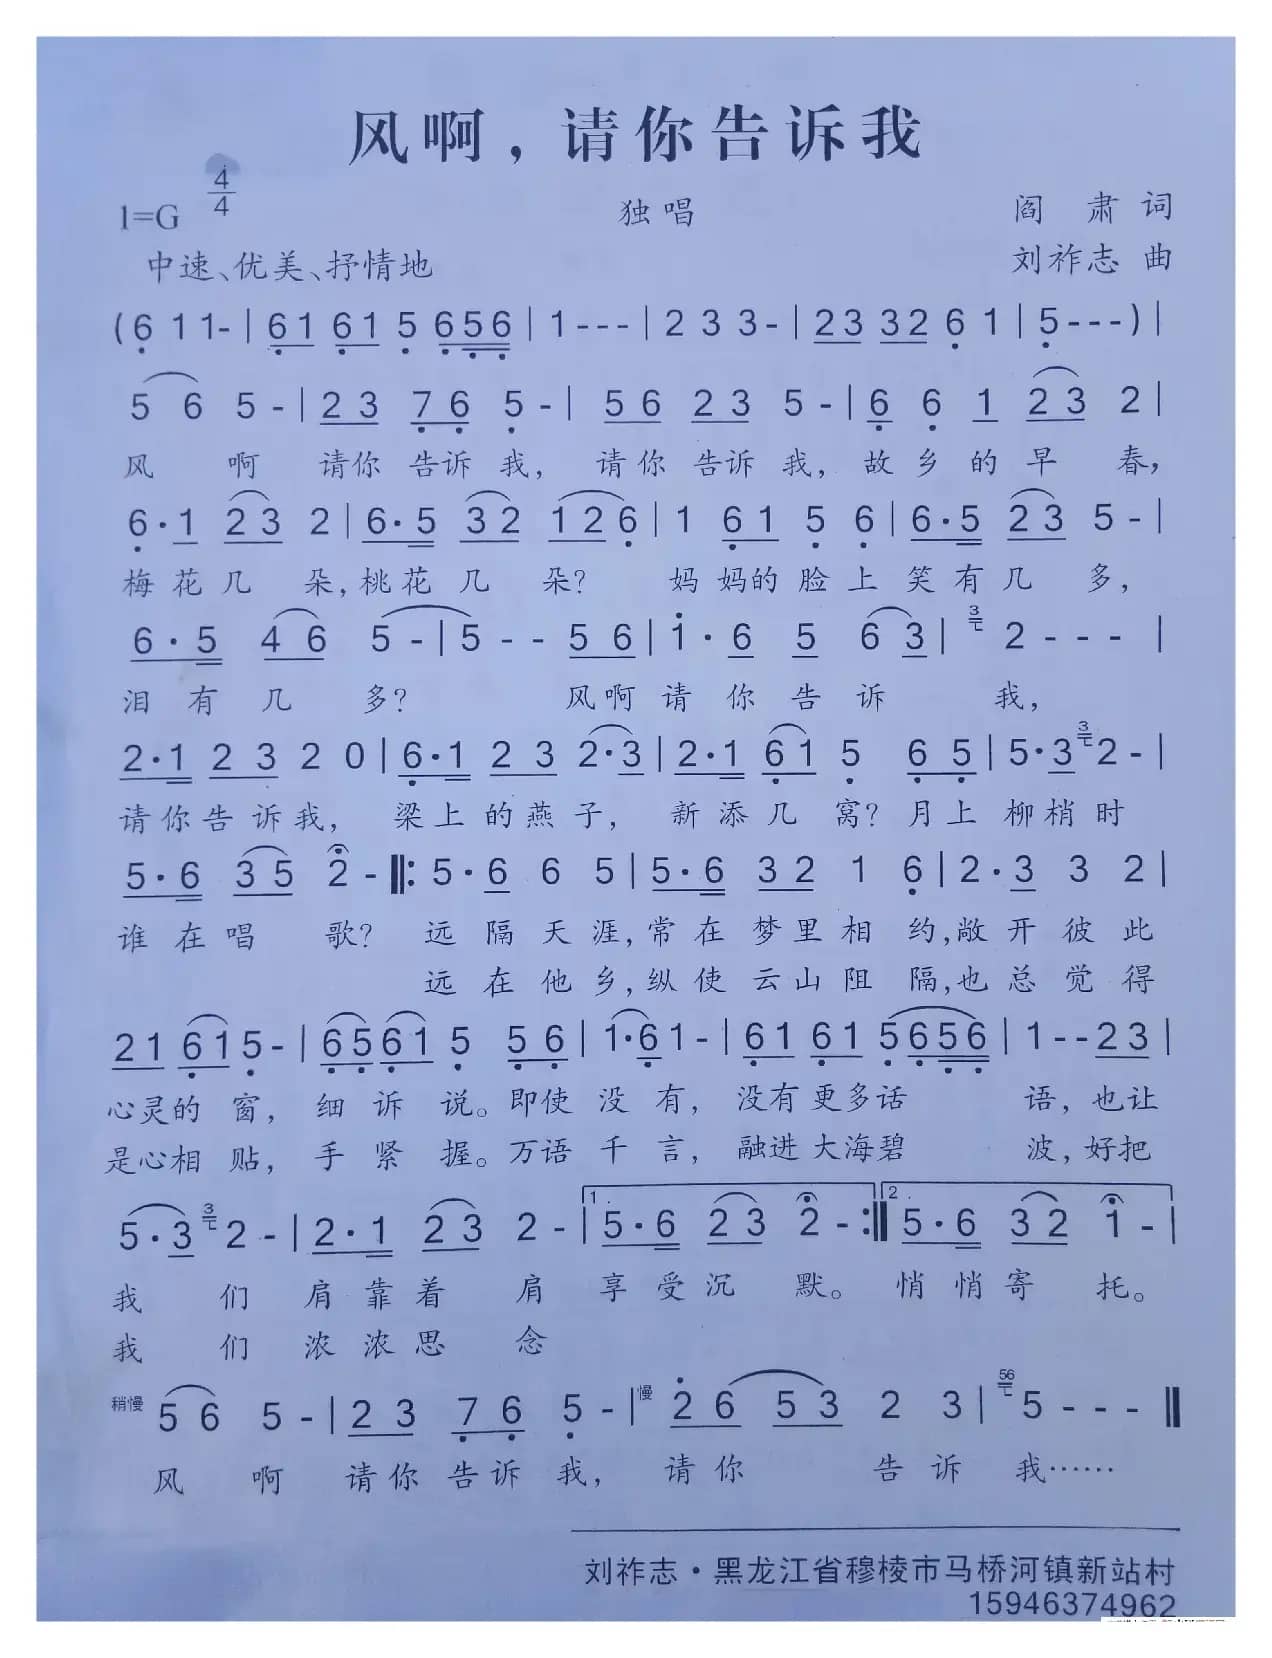 风啊，请你告诉我
4
4
1=G
独唱
阎 肃 词
中速、优美、抒情地
刘祚志 曲
(6 1 1- | 61 61 5 656 | 1--- | 2 3 3- | 23 32 6 1 | 5---) |
5 6 5 - | 2 3 7 6 5 - | 5 6 2 3 5 - | 6 6 1 2 3 2 |
风 啊 请你 告诉 我， 请你 告诉 我， 故 乡 的 早 春，
6·1 2 3 2 | 6·5 3 2 1 2 6 | 1 6 1 5 6 | 6·5 2 3 5 - |
梅 花 几 朵，桃花 几 朵？ 妈 妈的 脸 上 笑 有 几 多，
6·5 4 6 5 - | 5 - - 5 6 | 1·6 5 6 3 | 3 2 - - - |
泪 有 几 多？ 风啊 请 你 告 诉 我，
2·1 2 3 2 0 | 6·1 2 3 2·3 | 2·1 6 1 5 6 5 | 5·3 3 2 - |
请 你 告 诉 我， 梁 上 的 燕 子， 新 添 几 窝？ 月 上 柳 梢 时
5·6 3 5 2 - ‖: 5·6 6 5 | 5·6 3 2 1 6 | 2·3 3 2 |
谁 在 唱 歌？ 远 隔 天 涯，常 在 梦 里 相 约，敞 开 彼 此
远 在 他 乡，纵 使 云 山 阻 隔，也 总 觉 得
2 1 6 1 5 - | 6 5 6 1 5 5 6 | 1·6 1 - | 6 1 6 1 5 6 5 6 | 1 - - 2 3 |
心灵的 窗， 细 诉 说。即使 没 有， 没有 更多话 语，也让
是心相 贴， 手 紧 握。万语 千 言， 融进 大海碧 波，好把
5·3 3 2 - | 2·1 2 3 2 - | 1. 5·6 2 3 2 - :‖ 2. 5·6 3 2 1 - |
我 们 肩 靠 着 肩 享 受 沉 默。 悄 悄 寄 托。
我 们 浓 浓 思 念
稍慢 5 6 5 - | 2 3 7 6 5 - | 慢 2 6 5 3 2 3 | 56 5 - - - ‖
风 啊 请你 告诉 我， 请 你 告 诉 我……
刘祚志·黑龙江省穆棱市马桥河镇新站村
15946374962